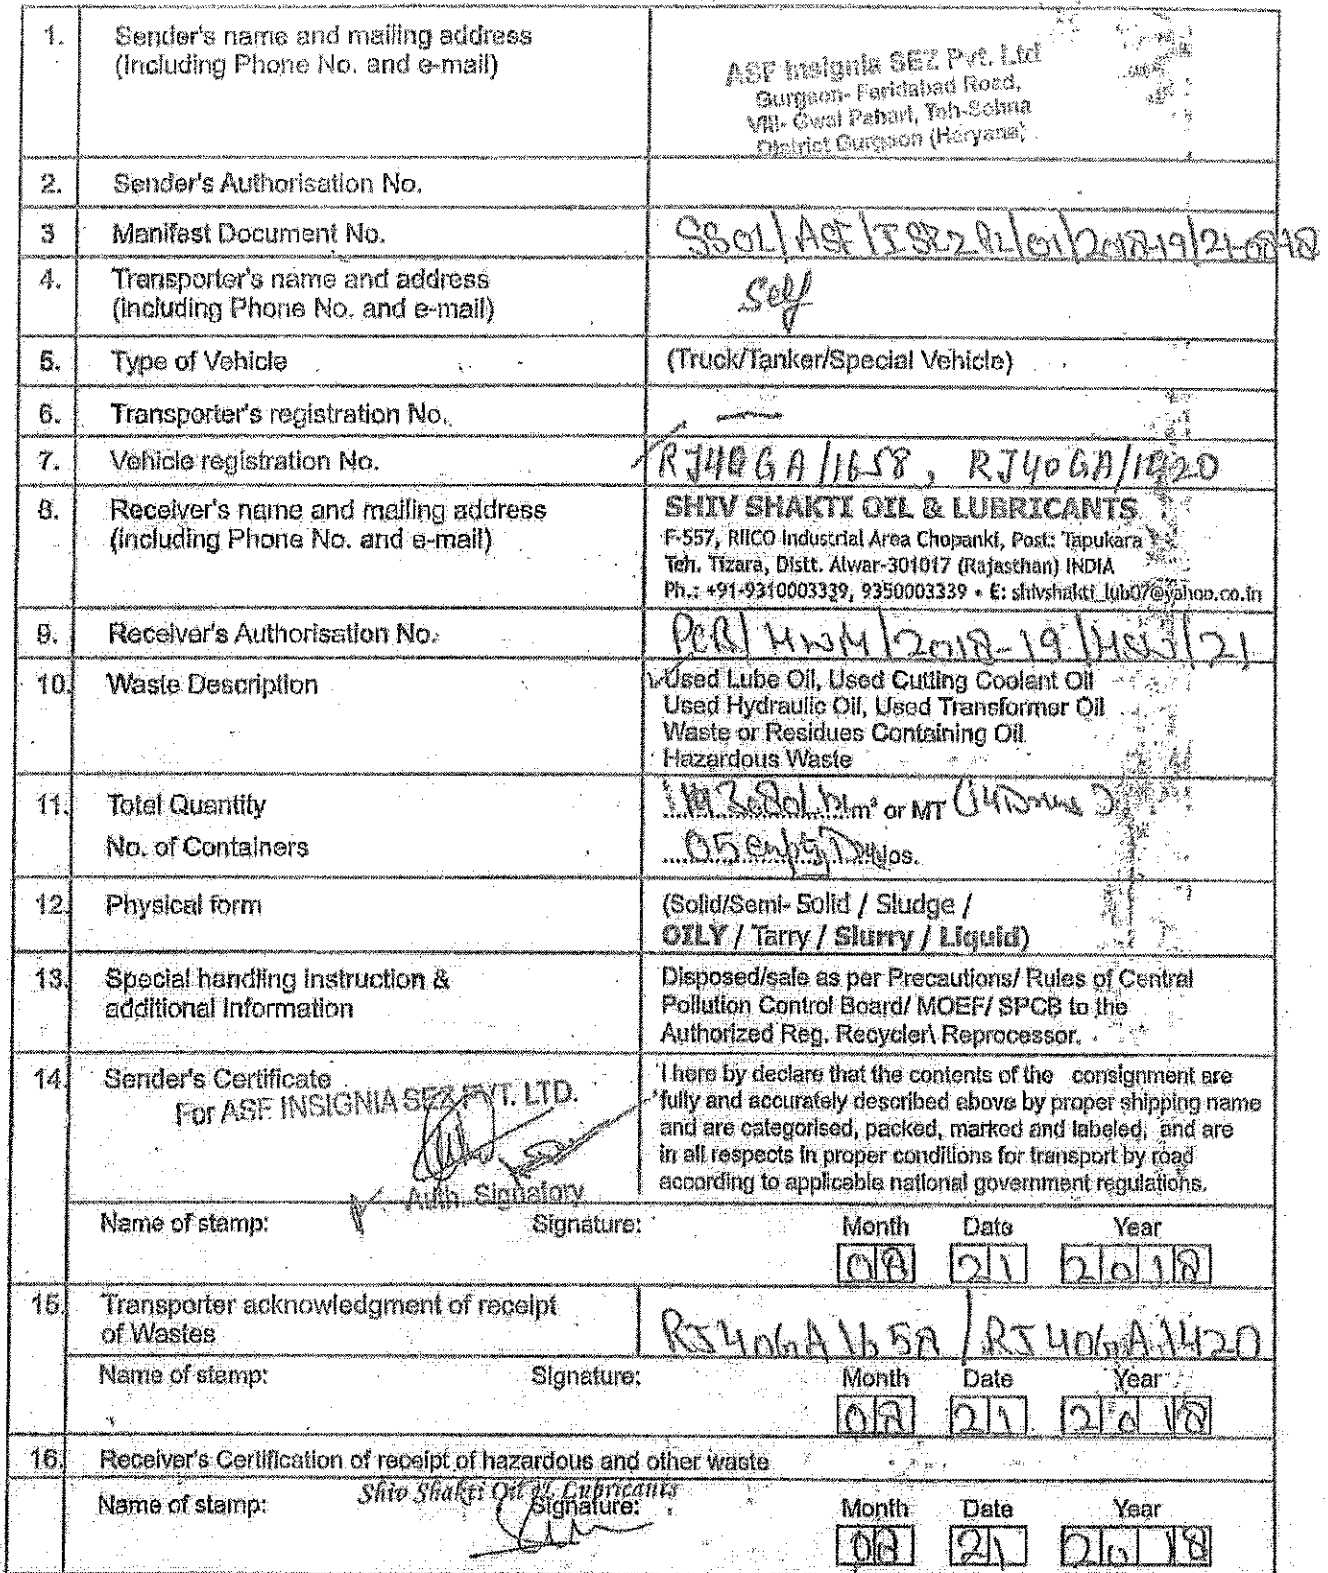 1. Sender's name and mailing address
(Including Phone No. and e-mail)
ASF Insignia SEZ Pvt. Ltd
Gurgaon- Faridabad Road,
Vill- Gwal Pahari, Teh-Sohna
District Gurgaon (Haryana)
2. Sender's Authorisation No.
3 Manifest Document No.
SSOL/ASF/ISEZPL/01/2018-19/21-08-18
4. Transporter's name and address
(including Phone No. and e-mail)
Self
5. Type of Vehicle
(Truck/Tanker/Special Vehicle)
6. Transporter's registration No.
7. Vehicle registration No.
RJ40GA/1658, RJ40GA/1420
8. Receiver's name and mailing address
(including Phone No. and e-mail)
SHIV SHAKTI OIL & LUBRICANTS
F-557, RIICO Industrial Area Chopanki, Post: Tapukara
Teh. Tizara, Distt. Alwar-301017 (Rajasthan) INDIA
Ph.: +91-9310003339, 9350003339 • E: shivshakti_lub07@yahoo.co.in
9. Receiver's Authorisation No.
PCB/HWM/2018-19/HSW/21
10. Waste Description
Used Lube Oil, Used Cutting Coolant Oil
Used Hydraulic Oil, Used Transformer Oil
Waste or Residues Containing Oil
Hazardous Waste
11. Total Quantity
m³ or MT
No. of Containers
05 empty Nos.
12. Physical form
(Solid/Semi- Solid / Sludge /
OILY / Tarry / Slurry / Liquid)
13. Special handling instruction &
additional Information
Disposed/sale as per Precautions/ Rules of Central
Pollution Control Board/ MOEF/ SPCB to the
Authorized Reg. Recycler\ Reprocessor.
14. Sender's Certificate
For ASF INSIGNIA SEZ PVT. LTD.
Auth. Signatory
I here by declare that the contents of the consignment are
fully and accurately described above by proper shipping name
and are categorised, packed, marked and labeled, and are
in all respects in proper conditions for transport by road
according to applicable national government regulations.
Name of stamp: Signature: Month Date Year
08 21 2018
15. Transporter acknowledgment of receipt
of Wastes
RJ40GA1658 / RJ40GA1420
Name of stamp: Signature: Month Date Year
08 21 2018
16. Receiver's Certification of receipt of hazardous and other waste
Shiv Shakti Oil & Lubricants
Name of stamp: Signature: Month Date Year
08 21 2018